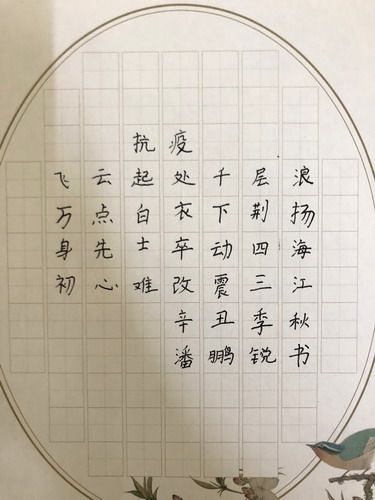 抗疫
飞云起处千层浪
万点白衣下荆扬
身先士卒动四海
初心难改震三江
辛丑季秋
潘鹏锐书